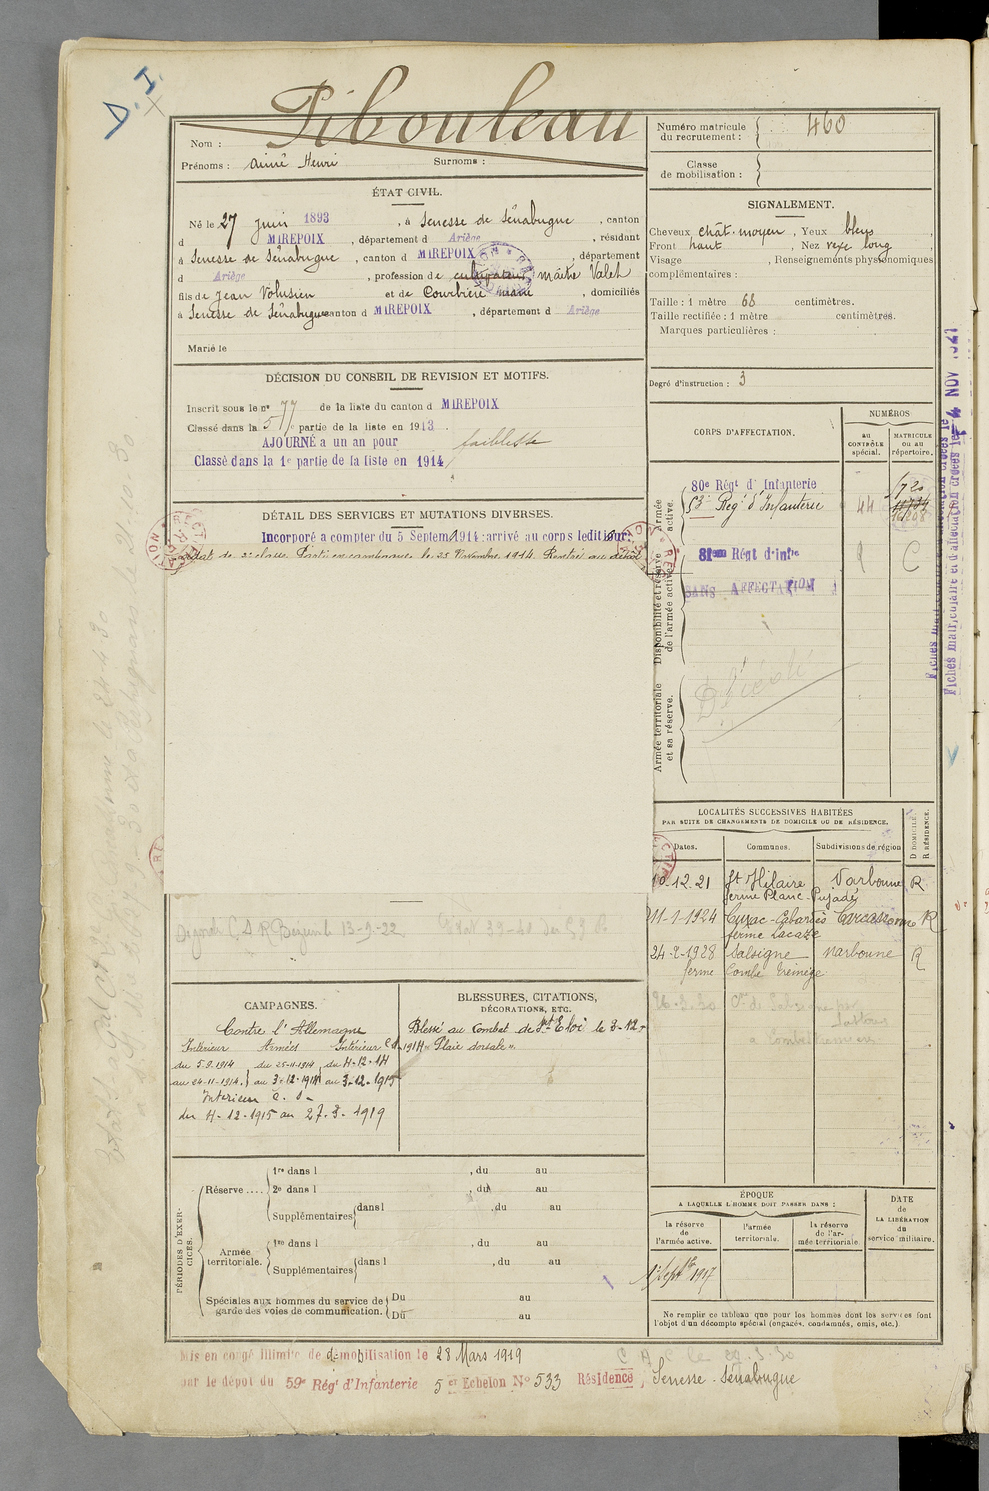 D. I.
Nom : Pibouleau
Prénoms : Aimé Henri Surnoms :
Numéro matricule du recrutement : 460
Classe de mobilisation :
ÉTAT CIVIL.
Né le 27 juin 1893, à Senesse de Sénabugue, canton
d MIREPOIX, département d Ariège, résidant
à Senesse de Sénabugue, canton d MIREPOIX, département
d Ariège, profession de cultivateur maître Valet
fils de Jean Volusien et de Courbière Marie, domiciliés
à Senesse de Sénabugue canton d MIREPOIX, département d Ariège
Marié le
SIGNALEMENT.
Cheveux chât. moyen, Yeux bleus
Front haut, Nez vexe long
Visage , Renseignements physionomiques
complémentaires :
Taille : 1 mètre 68 centimètres.
Taille rectifiée : 1 mètre centimètres.
Marques particulières :
Degré d'instruction : 3
DÉCISION DU CONSEIL DE REVISION ET MOTIFS.
Inscrit sous le nº 77 de la liste du canton d MIREPOIX
Classé dans la 5e partie de la liste en 1913.
AJOURNÉ a un an pour faiblesse
Classé dans la 1e partie de la liste en 1914
DÉTAIL DES SERVICES ET MUTATIONS DIVERSES.
Incorporé a compter du 5 Septem 1914 : arrivé au corps ledit jour
soldat de 2e classe. Parti en campagne le 25 Novembre 1914. Rentré au dépôt
CORPS D'AFFECTATION.
NUMÉROS
au CONTRÔLE spécial.
MATRICULE ou au répertoire.
Armée active.
80e Régt d' Infanterie
53e Regt d'Infanterie 44
Disponibilité et réserve de l'armée active.
81em Régt d'infie
SANS AFFECTATION
Armée territoriale et sa réserve.
Fiches matriculaire et d'affectation créées le 4 NOV 1921
LOCALITÉS SUCCESSIVES HABITÉES
PAR SUITE DE CHANGEMENTS DE DOMICILE OU DE RÉSIDENCE.
Dates. Communes. Subdivisions de région D DOMICILE. R RÉSIDENCE.
10-12.21 St Hilaire Narbonne R
ferme Planc-Pujade
11-1-1924 Cuxac-Cabardès Carcassonne R
ferme Lacaze
24-2-1928 Salsigne Narbonne R
ferme Combe Treinège
CAMPAGNES.
Contre l'Allemagne
Intérieur Armées Intérieur C.S.
du 5-9-1914 du 25-11-1914 du 4-12-14
au 24-11-1914. au 3-12-1914 au 3-12-1915
Intérieur C. S.
du 4-12-1915 au 27-3-1919
BLESSURES, CITATIONS,
DÉCORATIONS, ETC.
Blessé au Combat de St Eloi le 3-12-
1914 « Plaie dorsale ».
PÉRIODES D'EXERCICES.
Réserve ....
1re dans l , du au
2e dans l , du au
Supplémentaires dans l , du au
Armée territoriale.
1re dans l , du au
Supplémentaires dans l , du au
Spéciales aux hommes du service de garde des voies de communication.
Du au
Du au
ÉPOQUE
A LAQUELLE L'HOMME DOIT PASSER DANS :
la réserve de l'armée active.
l'armée territoriale.
la réserve de l'armée territoriale.
DATE de LA LIBÉRATION du service militaire.
1er Septbre 1917
Ne remplir ce tableau que pour les hommes dont les services font
l'objet d'un décompte spécial (engagés, condamnés, omis, etc.)
Mis en congé illimité de démobilisation le 28 Mars 1919
par le dépôt du 59e Régt d'Infanterie 5er Echelon Nº 533 Résidence, Senesse-Sénabugue